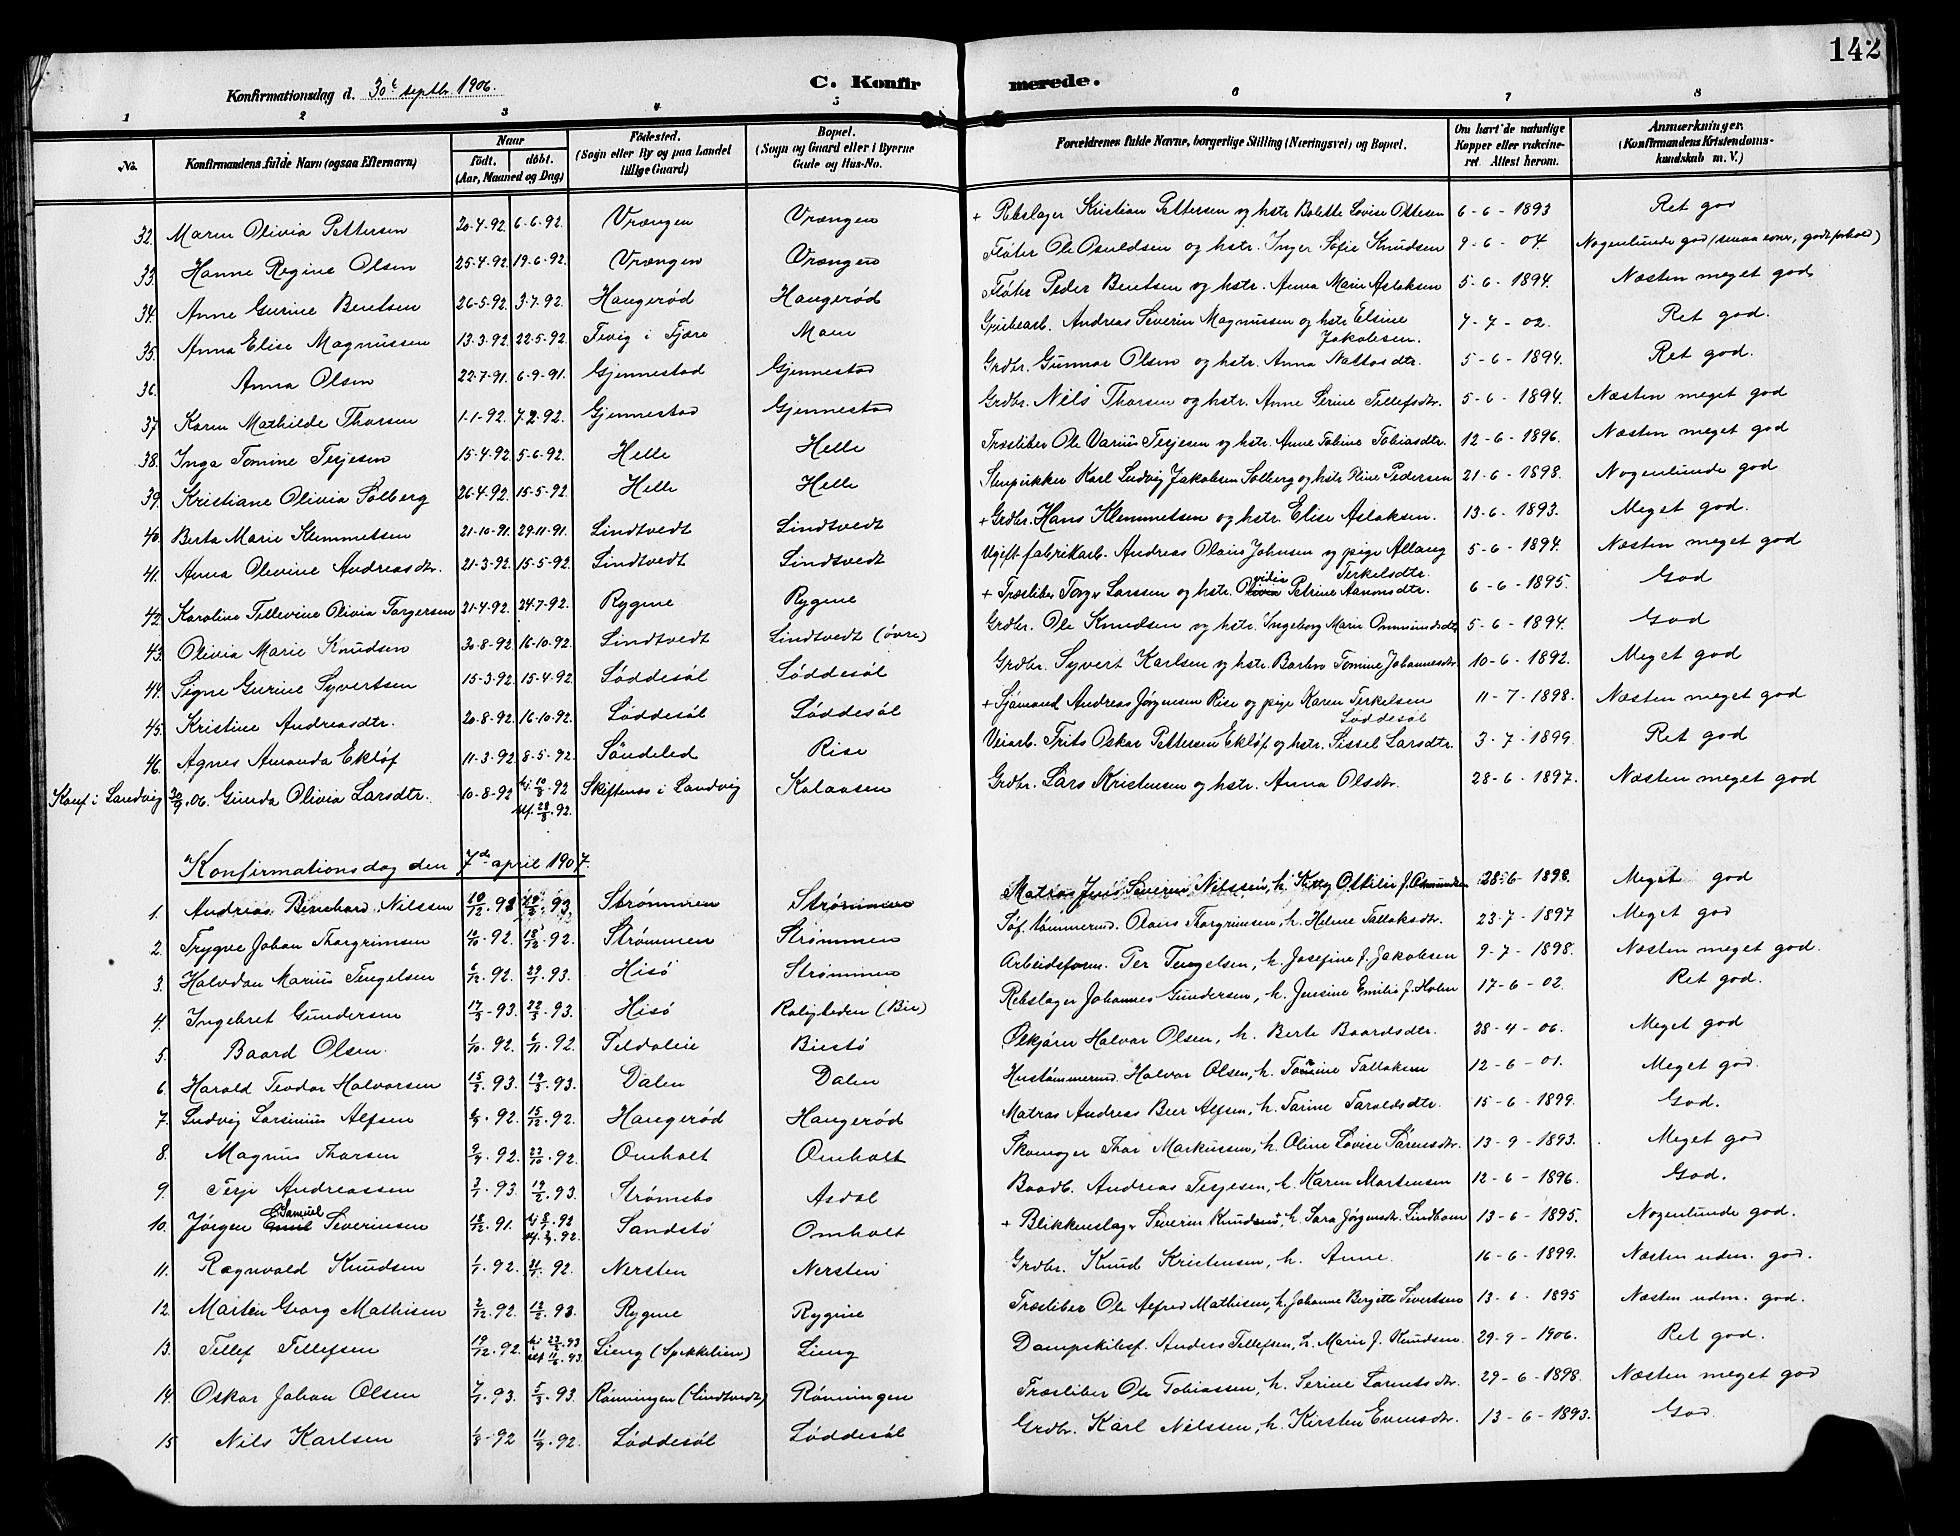 142
Konfirmationsdag d. 30te septbr. 1906.
C. Konfirmerede.
1 2 3 4 5 6 7 8
No. | Konfirmandens fulde Navn (ogsaa Efternavn) | Naar født. døbt. (Aar, Maaned og Dag) | Fødested. (Sogn eller By og paa Landet tillige Gaard) | Bopæl. (Sogn og Gaard eller i Byerne Gade og Hus-No. | Forældrenes fulde Navne, borgerlige Stilling (Næringsvei) og Bopæl. | Om havt de naturlige Kopper eller vakcineret. Attest herom. | Anmærkninger. (Konfirmandens Kristendomskundskab m. V.)
32. Maren Olivia Pettersen 20-4-92. 6-6-92. Vrængen Vrængen + Rebslager Kristian Pettersen og hstr Bolette Lovise Ottesen 6-6-1893 Ret god
33. Hanne Regine Olsen 25-4-92. 19-6-92. Vrængen Vrængen Fløter Ole Osuldsen og hstr. Inger Sofie Knudsen 9-6-04. Nogenlunde god
34. Anne Gurine Bentsen 26-5-92. 3-7-92. Haugerød Haugerød Fløter Peder Bentsen og hstr. Anna Marie Aslaksen 5-6-1894. Næsten meget god
35. Anna Elise Magnussen 13-3-92. 22-5-92. Fevig i Fjære Moen Grubearb. Andreas Severin Magnussen og hstr Elsine Jakobsen. 7-7-02. Ret god.
36. Anna Olsen 22-7-91. 6-9-91. Gjennestad Gjennestad Grdbr. Gunnar Olsen og hstr. Anna 5-6-1894. Ret god.
37. Karen Mathilde Thorsen 1-1-92. 7-2-92. Gjennestad Gjennestad Grdbr. Nils Thorsen og hstr. Anne Serine Tellefsdtr. 5-6-1894. Næsten meget god
38. Inga Tomine Terjesen 15-4-92. 5-6-92. Helle Helle Træsliber Ole Varius Terjesen og hstr. Anne Tobine Tobiasdtr. 12-6-1896. Næsten meget god
39. Kristiane Olivia Solberg 26-4-92. 15-5-92. Helle Helle Stenpikker Karl Ludvig Jakobsen Solberg og hstr Pedersen 21-6-1898. Nogenlunde god
40. Berta Marie Klemmetsen 21-10-91. 29-11-91. Lindtvedt Lindtvedt + Grdbr. Hans Klemmetsen og hstr. Elise Aslaksen. 13-6-1893. Meget god.
41. Anna Olivine Andreasdtr. 21-3-92. 15-5-92. Lindtvedt Lindtvedt Ugift fabrikarb. Andreas Olaus Johnsen og pige Allaug Terkelsdtr. 5-6-1894. Næsten meget god
42. Karoline Tellevine Olivia Torgersen 21-4-92. 24-7-92. Rygene Rygene + Træsliber Torger Larssen og hstr. Petrine Aanonsdtr. 6-6-1895. God
43. Olivia Marie Knudsen 30-8-92. 16-10-92. Lindtvedt Lindtvedt (øvre) Grdbr. Ole Knudsen og hstr. Ingeborg Marie Ommundsdtr 5-6-1894. God
44. Signe Gurine Syvertsen 15-3-92. 15-4-92. Løddesøl Løddesøl Grdbr. Syvert Karlsen og hstr. Barbro Tomine Johannesdtr 10-6-1892. Meget god
45. Kristine Andreasdtr. 20-8-92. 16-10-92. Løddesøl Løddesøl + Sjømand Andreas Jørgensen Rise og pige Karen Terkelsen Løddesøl 11-7-1898. Næsten meget god
46. Agnes Amanda Ekløf 11-3-92. 8-5-92. Søndeled Rise Veiarb. Frits Oskar Pettersen Ekløf og hstr. Sissel Larsdtr. 3-7-1899. Ret god
Konf i Landvig 30/9. 06. Gunda Olivia Larsdtr. 10-8-92 hj. 10/8. 92 28/8. 92. Skiftenæs i Landvig Kalaasen Grdbr. Lars Kristensen og hstr. Anna Olsdtr. 28-6-1897. Næsten meget god
Konfirmationsdag den 7de april 1907.
1. Andreas Bernhard Nilssen 10/12. 92 93. Strømmen Strømmen Matros Jens Severin Nilssen, h. Kitty Ottilie f. Osmundsen 28-6-1898. Meget god
2. Trygve Johan Thorgrimsen 12/10. 92. 18/12. 92. Strømmen Strømmen Søf. tømmermd. Olaus Thorgrimsen, h. Helene Tallaksdtr. 23-7-1897 Meget god
3. Halvdan Marius Tengelsen 6/12. 92. 29/1. 93. Hisø Strømmen Arbeidsform. Per Tengelsen, h. Josefine f. Jakobsen 9-7-1898. Næsten meget god.
4. Ingebret Gundersen 17/3. 93. 22/5. 93. Hisø Roligheden (Bie) Rebslager Johannes Gundersen, h. Jensine Emilie f. Holm 17-6-02. Ret god.
5. Baard Olsen. 1/10. 92. 6/11. 92. Feldaleie Biestø Ølkjører Halvor Olsen, h. Berte Baardsdtr. 28-4-06. Meget god
6. Harald Teodor Halvorsen 15/2. 93. 19/3. 93. Dalen Dalen Hustømmermd. Halvor Olsen, h. Tallaksen 12-6-01. Meget god.
7. Ludvig Larsinius Alfsen 6/9. 92. 15/12. 92. Haugerød Haugerød Matros Andreas Beer Alfsen, h. Tarine Taroldsdtr. 15-6-1899. God.
8. Magnus Thorsen 2/9. 92. 23/10. 92. Omholt Omholt Skomager Thor Markussen, h. Oline Lovise Sørensdtr. 13-9-1893. Meget god
9. Terje Andreassen 3/1. 93. 19/2. 93. Strømsbo Asdal Baadb. Andreas Terjesen, h. Karen Mortensen 12-6-1896. God.
10. Jørgen Samuel Severinsen 18/12. 91. hj 8/1. 92 92. Sandstø Omholt + Blikkenslager Severin Knudsen, h. Sara Jørgensdtr. Lindbom 13-6-1895. Nogenlunde god.
11. Ragnvald Knudsen 1/1. 92. 21/1. 92. Nersten Nersten Grdbr. Knud Kristensen, h. Anne. 16-6-1899. Næsten udm. god.
12. Marten Georg Mathisen 2/12. 92. 12/2. 93. Rygene Rygene Træsliber Ole Alfred Mathisen, h. Johanne Bergitte Sivertsen 13-6-1895 Næsten udm. god.
13. Tellef Tellefsen 19/12. 92. hj 23/2. 93 11/6. 93. Lieng (Spikkelien) Lieng Dampskibsf. Anders Tellefsen, h. Marie f. Knudsen. 29-9-1906. Ret god.
14. Oskar Johan Olsen 7/1. 93. 5/3. 93. Rønningen (Lindtvedt) Rønningen Træsliber Ole Tobiassen, h. Serine Larentsdtr. 29-6-1898. Næsten meget god
15 Nils Karlsen 1/8. 92 11/9. 92. Løddesøl Løddesøl Grdbr. Karl Nilssen, h. Kirsten Evensdtr. 13-6-1893. God.